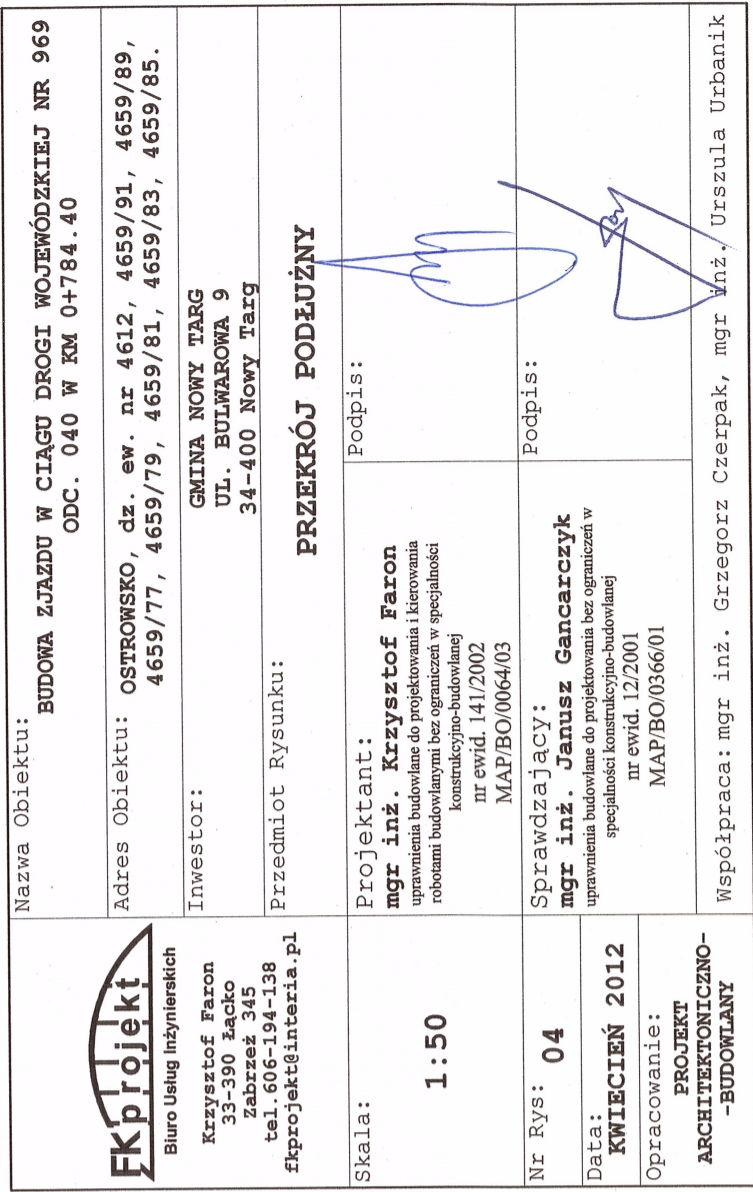 FKprojekt
Biuro Usług Inżynierskich
Krzysztof Faron
33-390 Łącko
Zabrzeż 345
tel.606-194-138
fkprojekt@interia.pl
Nazwa Obiektu:
BUDOWA ZJAZDU W CIĄGU DROGI WOJEWÓDZKIEJ NR 969
ODC. 040 W KM 0+784.40
Adres Obiektu: OSTROWSKO, dz. ew. nr 4612, 4659/91, 4659/89,
4659/77, 4659/79, 4659/81, 4659/83, 4659/85.
Inwestor:
GMINA NOWY TARG
UL. BULWAROWA 9
34-400 Nowy Targ
Przedmiot Rysunku:
PRZEKRÓJ PODŁUŻNY
Skala:
1:50
Projektant:
mgr inż. Krzysztof Faron
uprawnienia budowlane do projektowania i kierowania
robotami budowlanymi bez ograniczeń w specjalności
konstrukcyjno-budowlanej
nr ewid. 141/2002
MAP/BO/0064/03
Podpis:
Nr Rys: 04
Sprawdzający:
mgr inż. Janusz Gancarczyk
uprawnienia budowlane do projektowania bez ograniczeń w
specjalności konstrukcyjno-budowlanej
nr ewid. 12/2001
MAP/BO/0366/01
Podpis:
Data:
KWIECIEŃ 2012
Opracowanie:
PROJEKT
ARCHITEKTONICZNO-
-BUDOWLANY
Współpraca: mgr inż. Grzegorz Czerpak, mgr inż. Urszula Urbanik